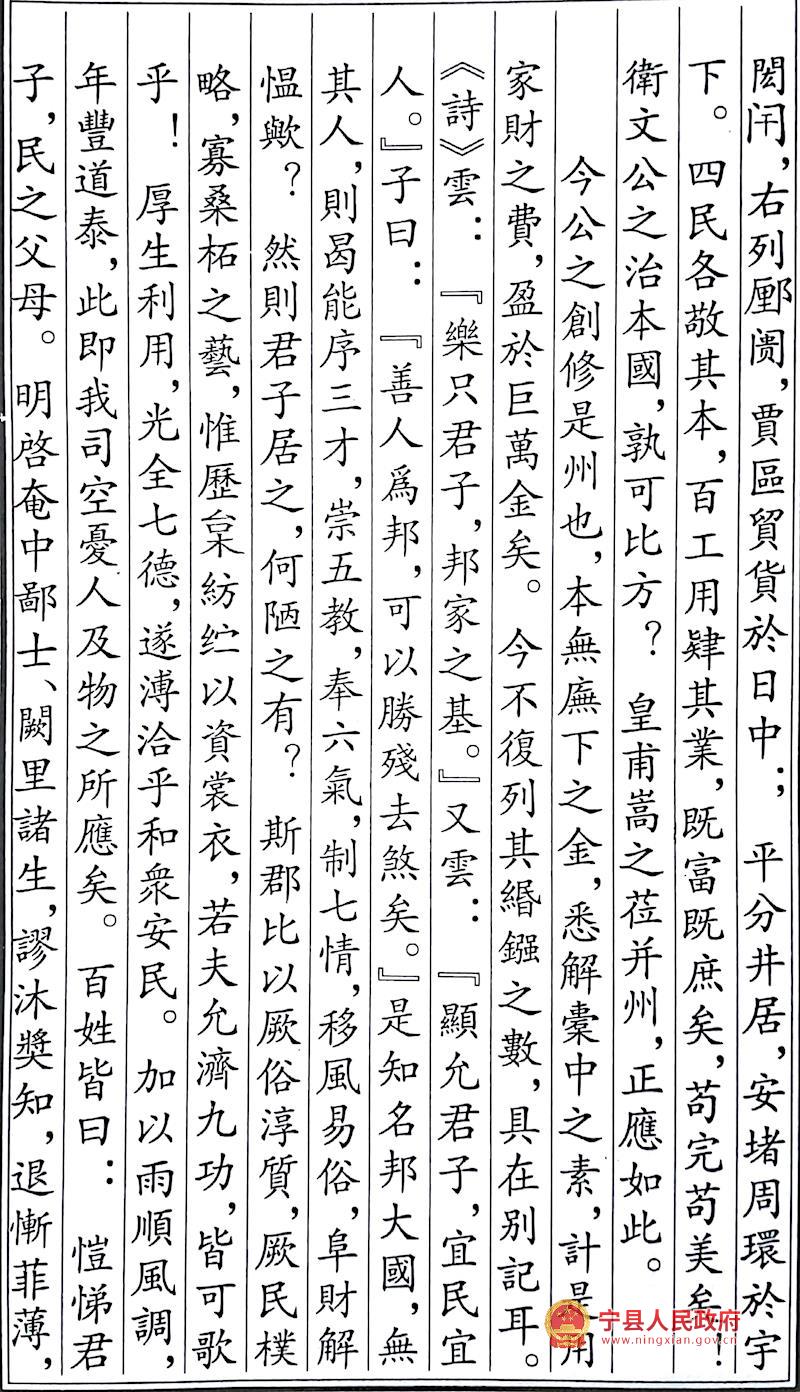 閎闬，右列郾阓，賈區貿貨於日中；平分井居，安堵周環於宇
下。四民各敬其本，百工用肄其業，既富既庶矣，苟完苟美矣！
衛文公之治本國，孰可比方？皇甫嵩之莅并州，正應如此。
今公之創修是州也，本無廡下之金，悉解橐中之素，計是用
家財之費，盈於巨萬金矣。今不復列其緡鏹之數，具在別記耳。
《詩》雲：『樂只君子，邦家之基。』又雲：『顯允君子，宜民宜
人。』子曰：『善人爲邦，可以勝殘去煞矣。』是知名邦大國，無
其人，則曷能序三才，崇五教，奉六氣，制七情，移風易俗，阜財解
愠歟？然則君子居之，何陋之有？斯郡比以厥俗淳質，厥民樸
略，寡桑柘之藝，惟歷枲紡纻以資裳衣，若夫允濟九功，皆可歌
乎！厚生利用，光全七德，遂溥洽乎和衆安民。加以雨順風調，
年豐道泰，此即我司空憂人及物之所應矣。百姓皆曰：愷悌君
子，民之父母。明啓奄中鄙士、闕里諸生，謬沐獎知，退慚菲薄，
宁县人民政府
www.ningxian.gov.cn